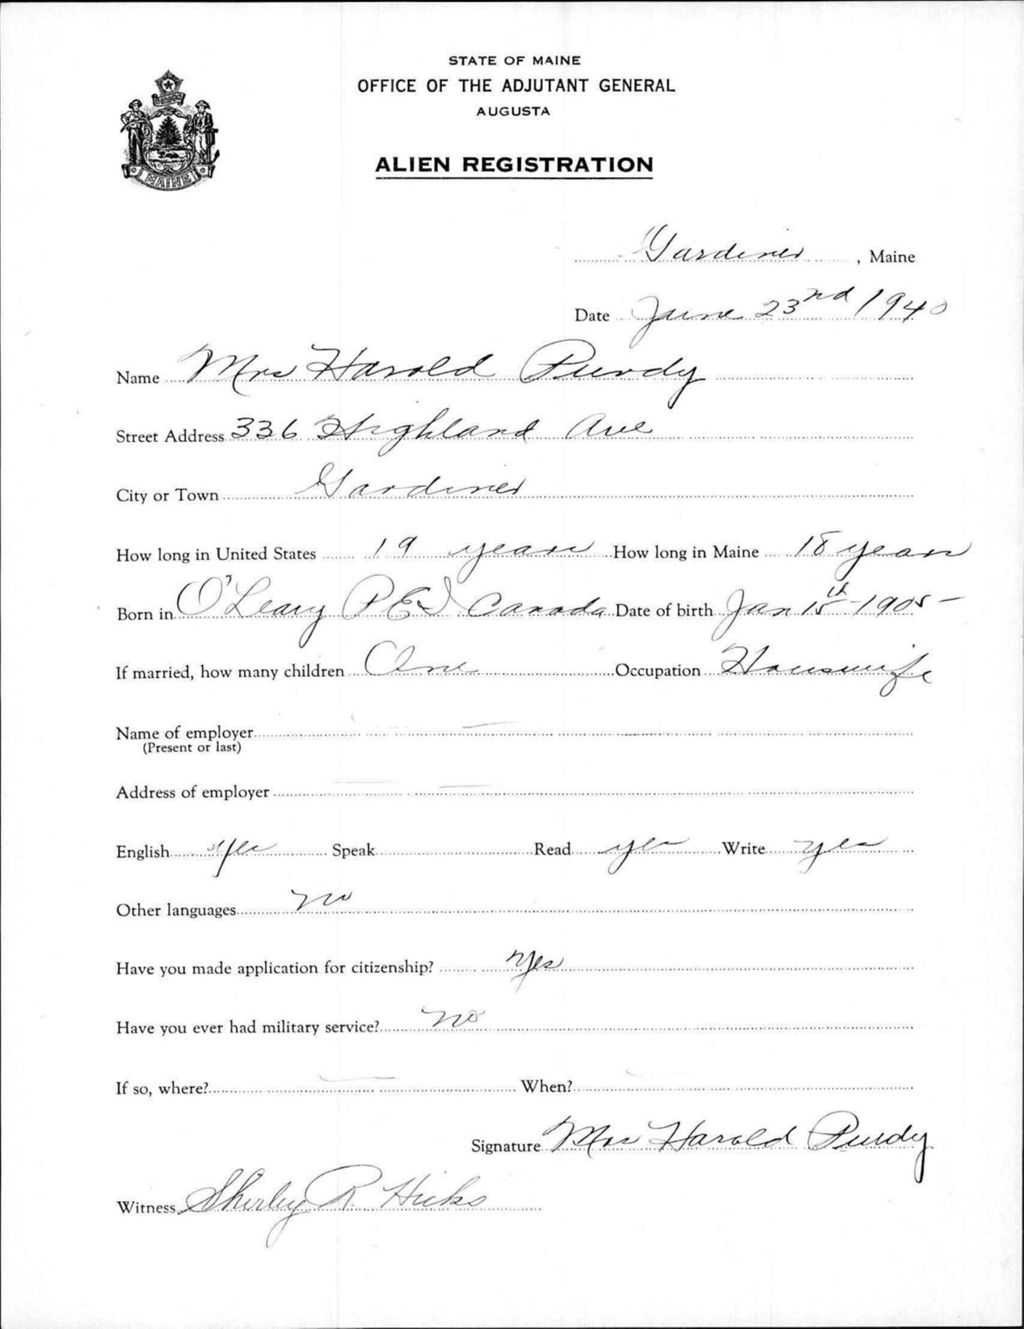 STATE OF MAINE
OFFICE OF THE ADJUTANT GENERAL
AUGUSTA
ALIEN REGISTRATION
MAINE
Gardiner, Maine
Date June 23nd 1940
Name Mrs Harold Purdy
Street Address 336 Highland Ave
City or Town Gardiner
How long in United States 19 years How long in Maine 18 years
Born in O'Leary P E I Canada Date of birth Jan 15th 1905
If married, how many children One Occupation Housewife
Name of employer
(Present or last)
Address of employer
English yes Speak Read yes Write yes
Other languages no
Have you made application for citizenship? Yes
Have you ever had military service? no
If so, where? When?
Signature Mrs Harold Purdy
Witness Shirley R. Hicks